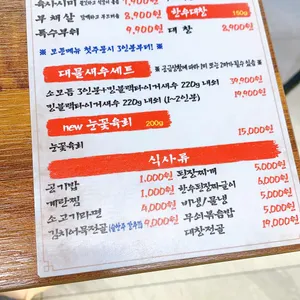 육사시미 7,900원
부채살 8,900원
특수부위 9,900원
한우대창 160g
대창 8,900원
※ 모든메뉴 첫주문시 3인분부터!
대물새우세트
소모듬 3인분+킹블랙타이거새우 220g 내외 39,900원
킹블랙타이거새우 220g 내외 (1~2인분) 19,900원
new 눈꽃육회 200g
눈꽃육회 15,000원
식사류
공기밥 1,000원
계란찜 1,000원
소고기라면 4,000원
김치어묵전골 9,000원
된장찌개 5,000원
한우된장짜글이 6,000원
비냉/물냉 5,000원
무쇠볶음밥 5,000원
대창전골 19,000원